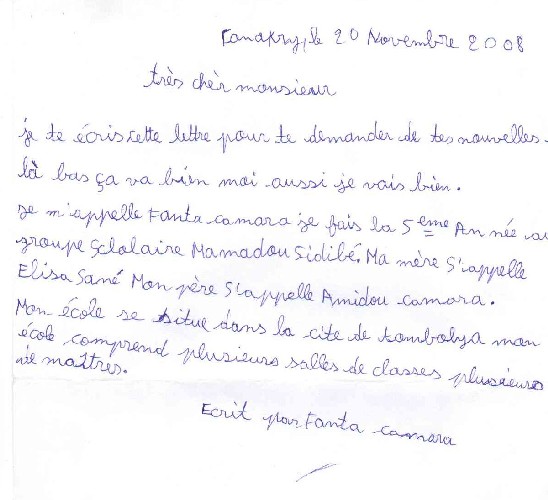 Conakry, le 20 Novembre 2008
très chèr monsieur
je te écris cette lettre pour te demander de tes nouvelles.
là bas ça va bien moi aussi je vais bien.
je m'appelle Fanta camara je fais la 5 eme Année au
groupe Sclolaire Mamadou Sidibé. Ma mère S'appelle
Elisa Sané Mon père S'appelle Amidou camara.
Mon école se situe dans la cite de tombolya mon
école comprend plusieurs salles de classes plusieurs
de maîtres.
Ecrit par Fanta camara